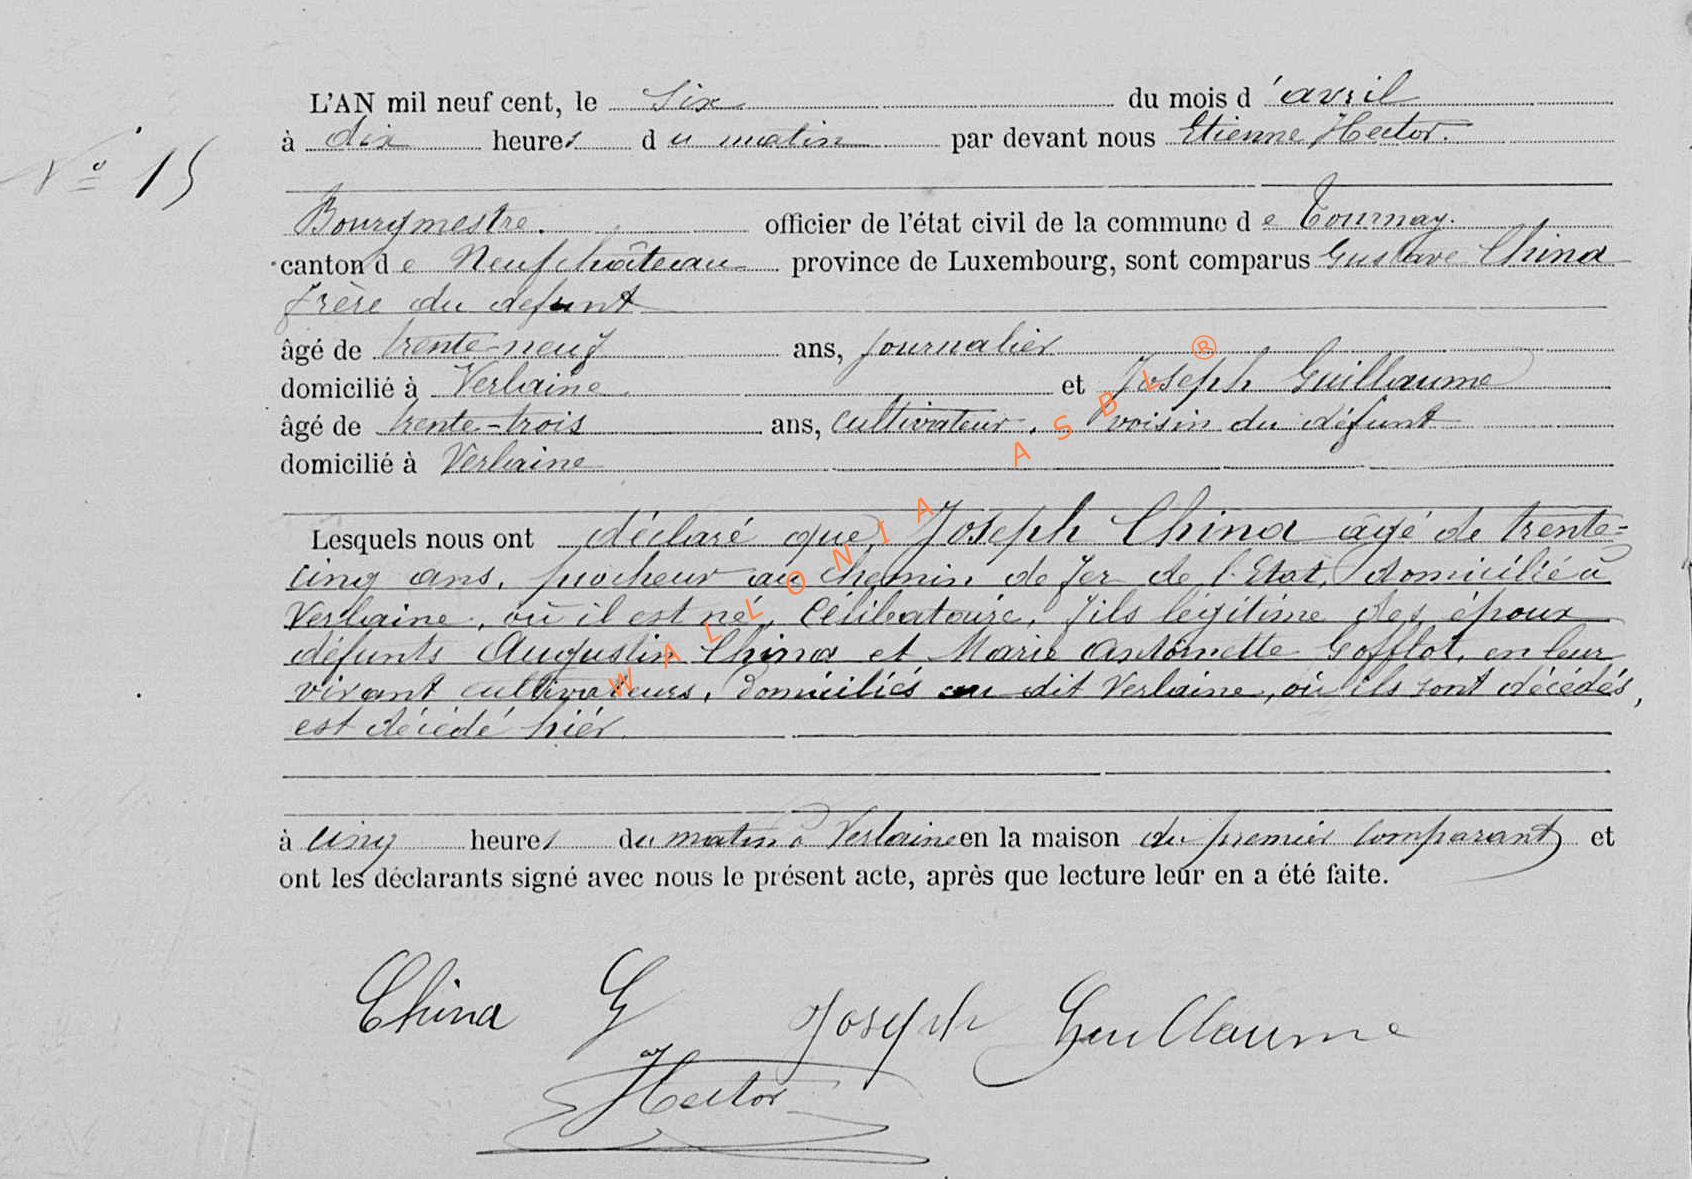 L'AN mil neuf cent, le six du mois d'avril
à dix heures du matin par devant nous Etienne Hector.
N° 15
Bourgmestre. officier de l'état civil de la commune de Tournay.
canton de Neufchâteau province de Luxembourg, sont comparus Gustave China
frère du défunt
âgé de trente-neuf ans, journalier
domicilié à Verlaine. et Joseph Guillaume
âgé de trente-trois ans, cultivateur, voisin du défunt
domicilié à Verlaine
Lesquels nous ont déclaré que, Joseph China âgé de trente-
cinq ans, piocheur au chemin de fer de l'Etat, domicilié à
Verlaine, où il est né, célibataire, fils légitime des époux
défunts Augustin China et Marie Antoinette Gofflot, en leur
vivant cultivateurs, domiciliés au dit Verlaine, où ils sont décédés,
est décédé hier.
à cinq heures du matin à Verlaine en la maison du premier comparant et
ont les déclarants signé avec nous le présent acte, après que lecture leur en a été faite.
China G Joseph Guillaume
Hector
WALLONIA ASBL ®